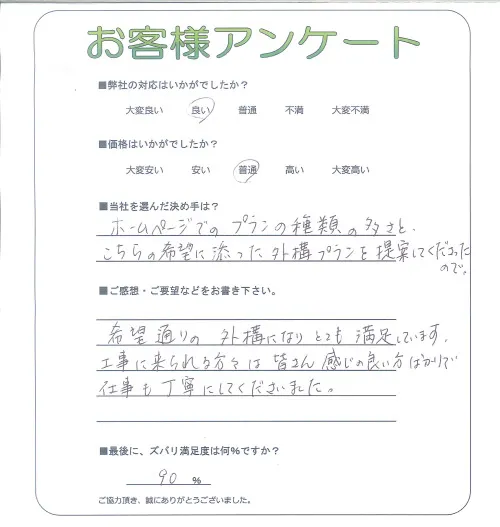 お客様アンケート
■弊社の対応はいかがでしたか?
大変良い 良い 普通 不満 大変不満
■価格はいかがでしたか?
大変安い 安い 普通 高い 大変高い
■当社を選んだ決め手は?
ホームページでのプランの種類の多さと、
こちらの希望に添った外構プランを提案してくださった
ので。
■ご感想・ご要望などをお書き下さい。
希望通りの外構になりとても満足しています。
工事に来られる方々は皆さん感じの良い方ばかりで
仕事も丁寧にしてくださいました。
■最後に、ズバリ満足度は何%ですか?
90 %
ご協力頂き、誠にありがとうございました。